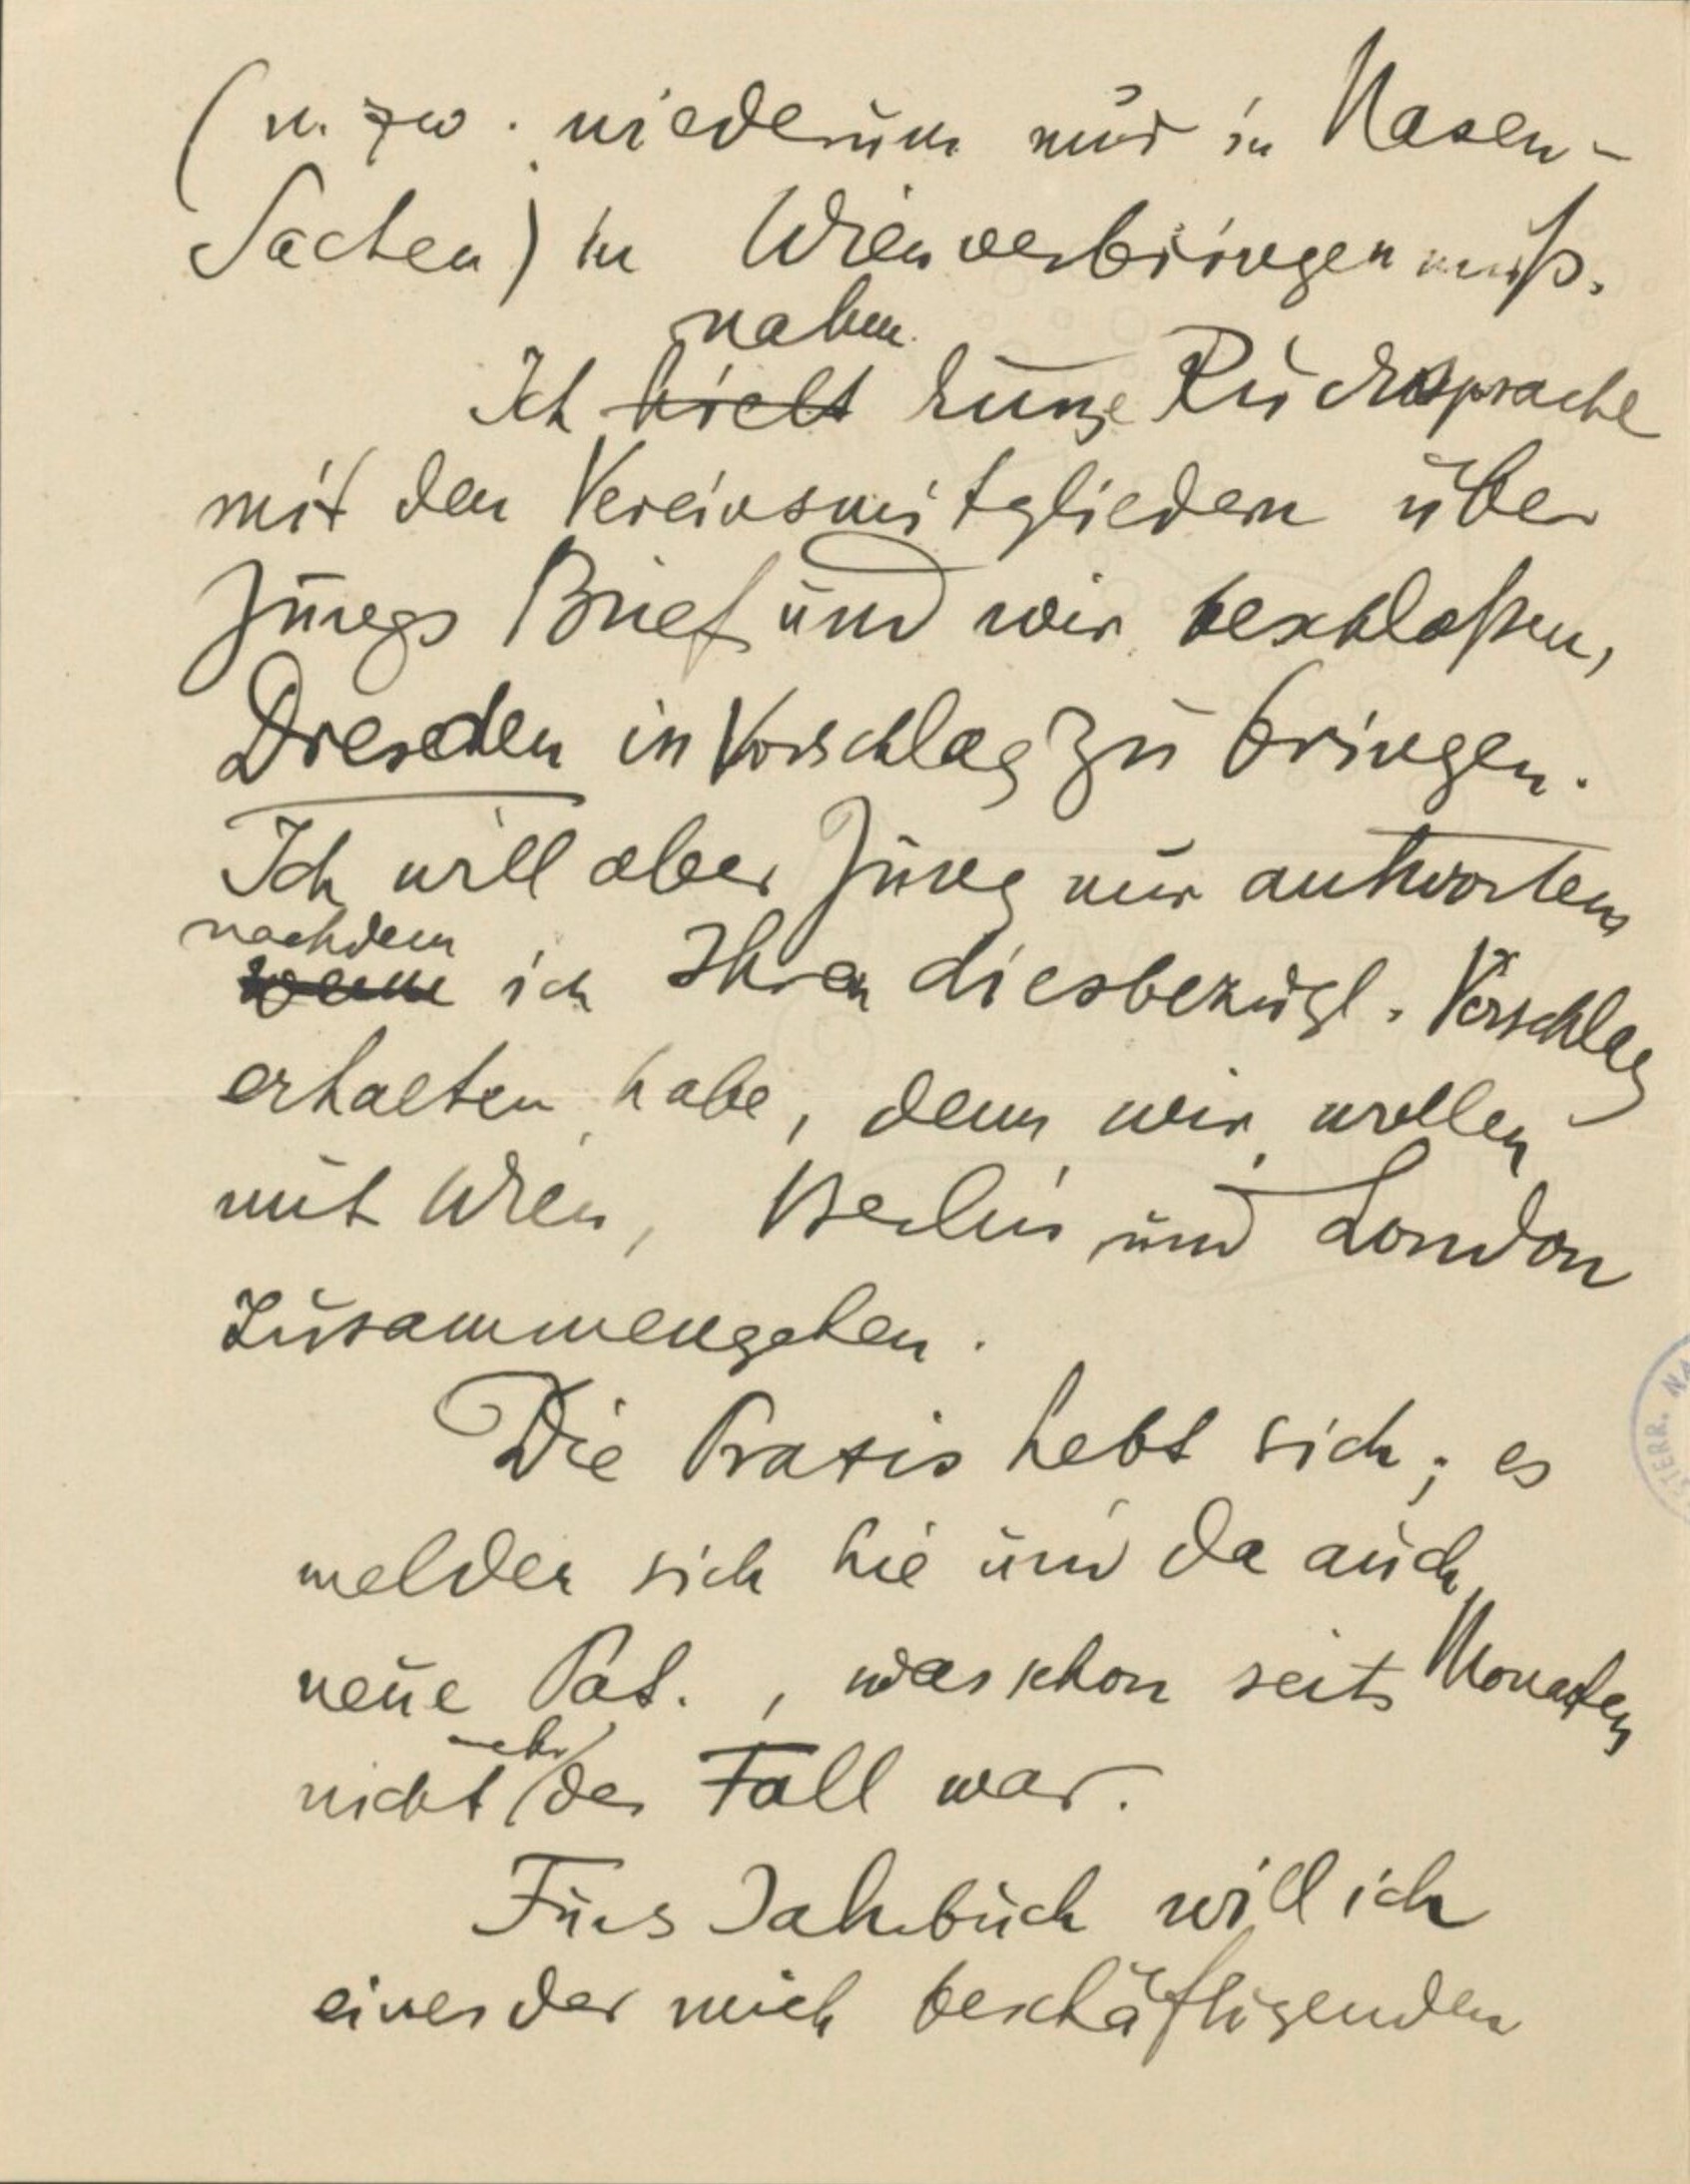 (u. zw. wiederum nur in Nasen-
Sachen) in Wien verbringen muß.
nahm
Ich hielt kurze Rücksprache
mit den Vereinsmitgliedern über
Jungs Brief und wir beschloßen,
Dresden in Vorschlag zu bringen.
Ich will aber Jung nur antworten
nachdem
wenn ich Ihren diesbezügl. Vorschlag
erhalten habe, denn wir wollen
mit Wien, Berlin und London
zusammengehen.
Die Praxis hebt sich; es
melden sich hie und da auch
neue Pat., was schon seit Monaten
mehr
nicht der Fall war.
Fürs Jahrbuch will ich
eines der mich beschäftigenden
TERR. NA